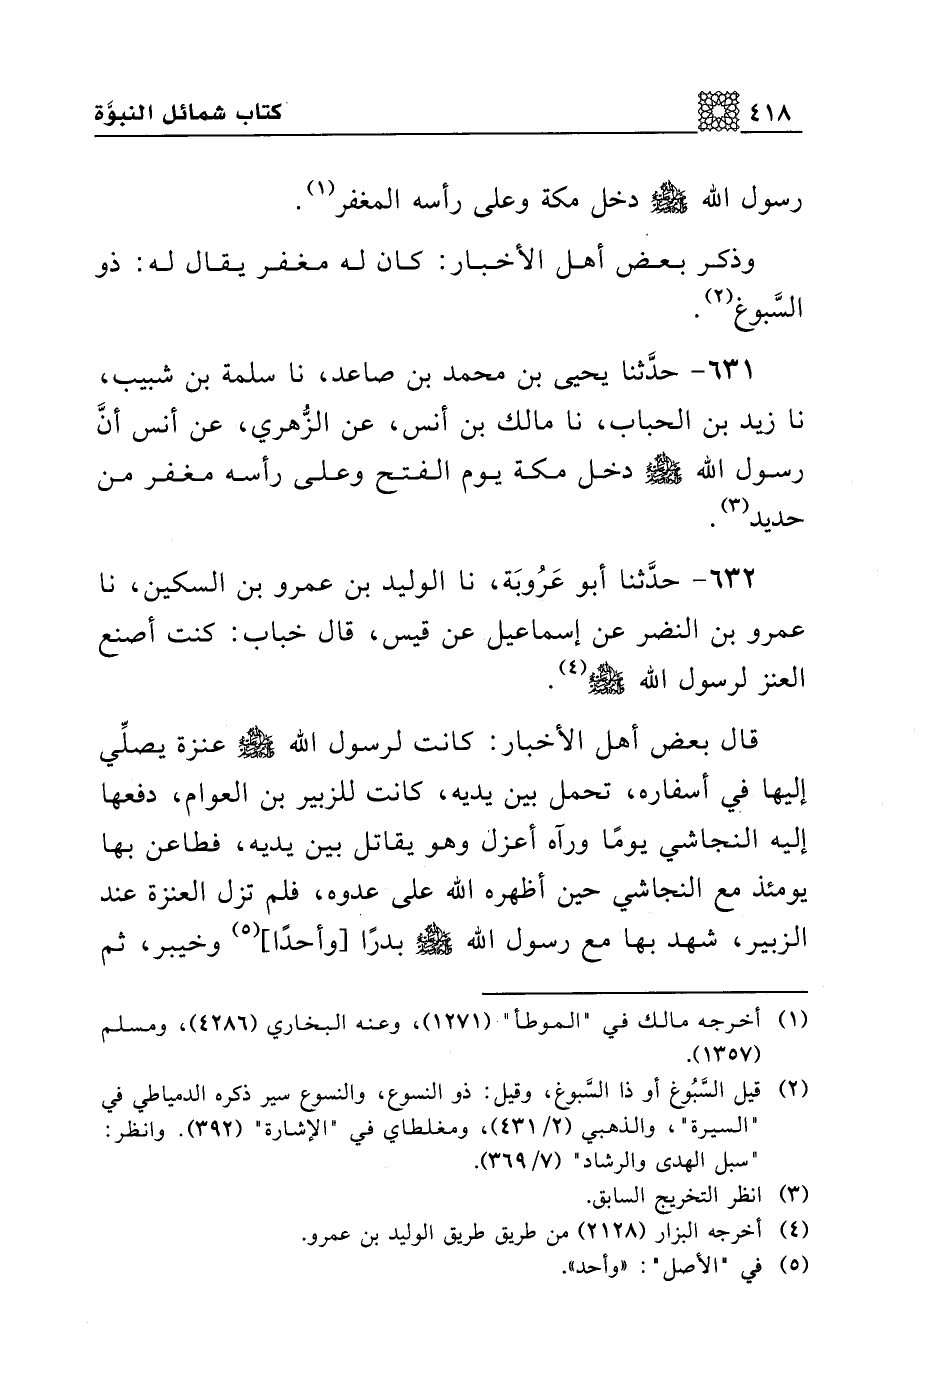 ٤١٨ كتاب شمائل النبوَّة
رسول الله ﷺ دخل مكة وعلى رأسه المغفر(١).
وذكر بعض أهل الأخبار: كان له مغفر يقال له: ذو
السَّبوغ(٢).
٦٣١- حدَّثنا يحيى بن محمد بن صاعد، نا سلمة بن شبيب،
نا زيد بن الحباب، نا مالك بن أنس، عن الزُّهري، عن أنس أنَّ
رسول الله ﷺ دخل مكة يوم الفتح وعلى رأسه مغفر من
حديد(٣).
٦٣٢- حدَّثنا أبو عَرُوبَة، نا الوليد بن عمرو بن السكين، نا
عمرو بن النضر عن إسماعيل عن قيس، قال خباب: كنت أصنع
العنز لرسول الله ﷺ(٤).
قال بعض أهل الأخبار: كانت لرسول الله ﷺ عنزة يصلِّي
إليها في أسفاره، تحمل بين يديه، كانت للزبير بن العوام، دفعها
إليه النجاشي يومًا ورآه أعزل وهو يقاتل بين يديه، فطاعن بها
يومئذ مع النجاشي حين أظهره الله على عدوه، فلم تزل العنزة عند
الزبير، شهد بها مع رسول الله ﷺ بدرًا [وأحدًا](٥) وخيبر، ثم
(١) أخرجه مالك في "الموطأ" (١٢٧١)، وعنه البخاري (٤٢٨٦)، ومسلم
(١٣٥٧).
(٢) قيل السَّبُوغ أو ذا السَّبوغ، وقيل: ذو النسوع، والنسوع سير ذكره الدمياطي في
"السيرة"، والذهبي (٤٣١/٢)، ومغلطاي في "الإشارة" (٣٩٢). وانظر:
"سبل الهدى والرشاد" (٣٦٩/٧).
(٣) انظر التخريج السابق.
(٤) أخرجه البزار (٢١٢٨) من طريق طريق الوليد بن عمرو.
(٥) في "الأصل": «وأحد».